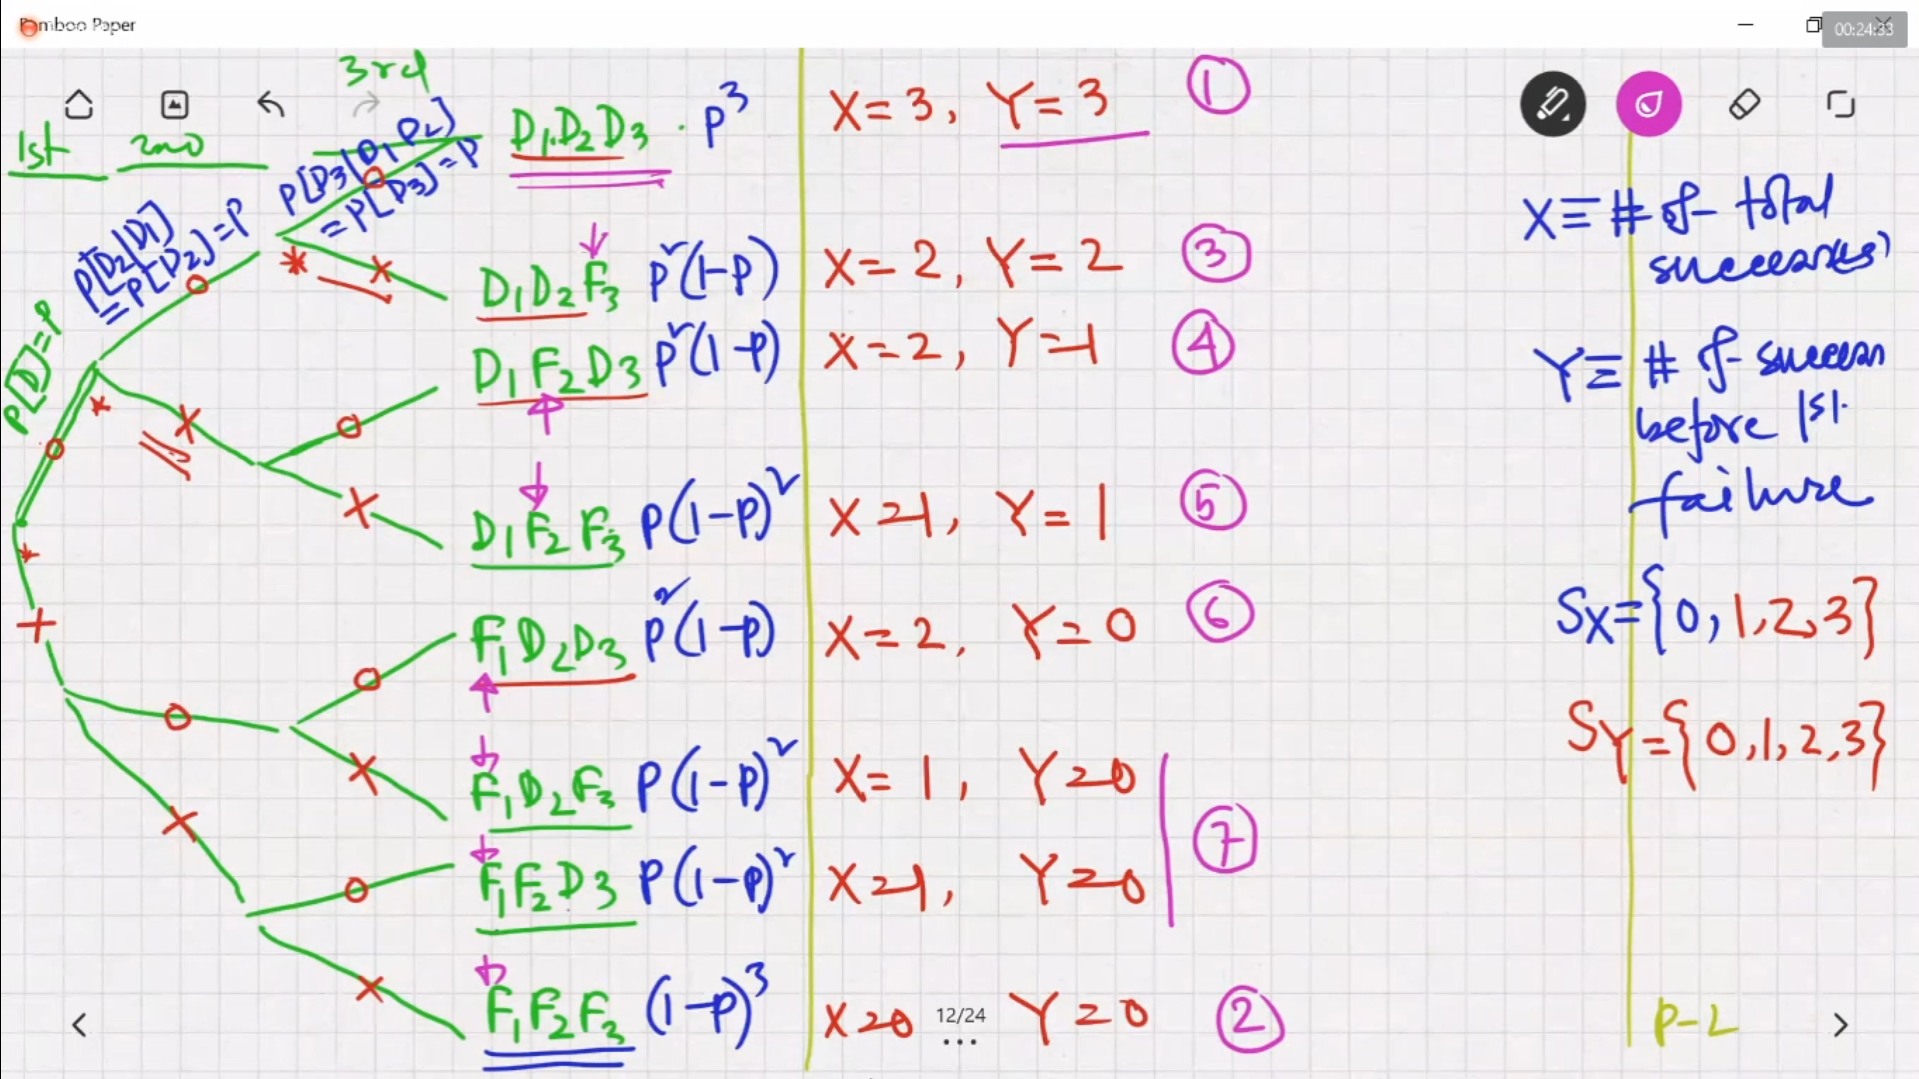 Bamboo Paper
00:24:33
3rd
1st 2nd
P[D3|D1 D2]
= P[D3] = P
P[D2|D1]
= P[D2] = P
P[D] = P
D1 D2 D3 . p³ X = 3, Y = 3 ①
D1 D2 F3 p²(1-p) X = 2, Y = 2 ③
D1 F2 D3 p²(1-p) X = 2, Y = 1 ④
D1 F2 F3 p(1-p)² X = 1, Y = 1 ⑤
F1 D2 D3 p²(1-p) X = 2, Y = 0 ⑥
F1 D2 F3 p(1-p)² X = 1, Y = 0
⑦
F1 F2 D3 p(1-p)² X = 1, Y = 0
F1 F2 F3 (1-p)³ X = 0 Y = 0 ②
12/24
X ≡ # of total
success(es)
Y ≡ # of success
before 1st
failure
Sx = {0, 1, 2, 3}
SY = {0, 1, 2, 3}
P-2